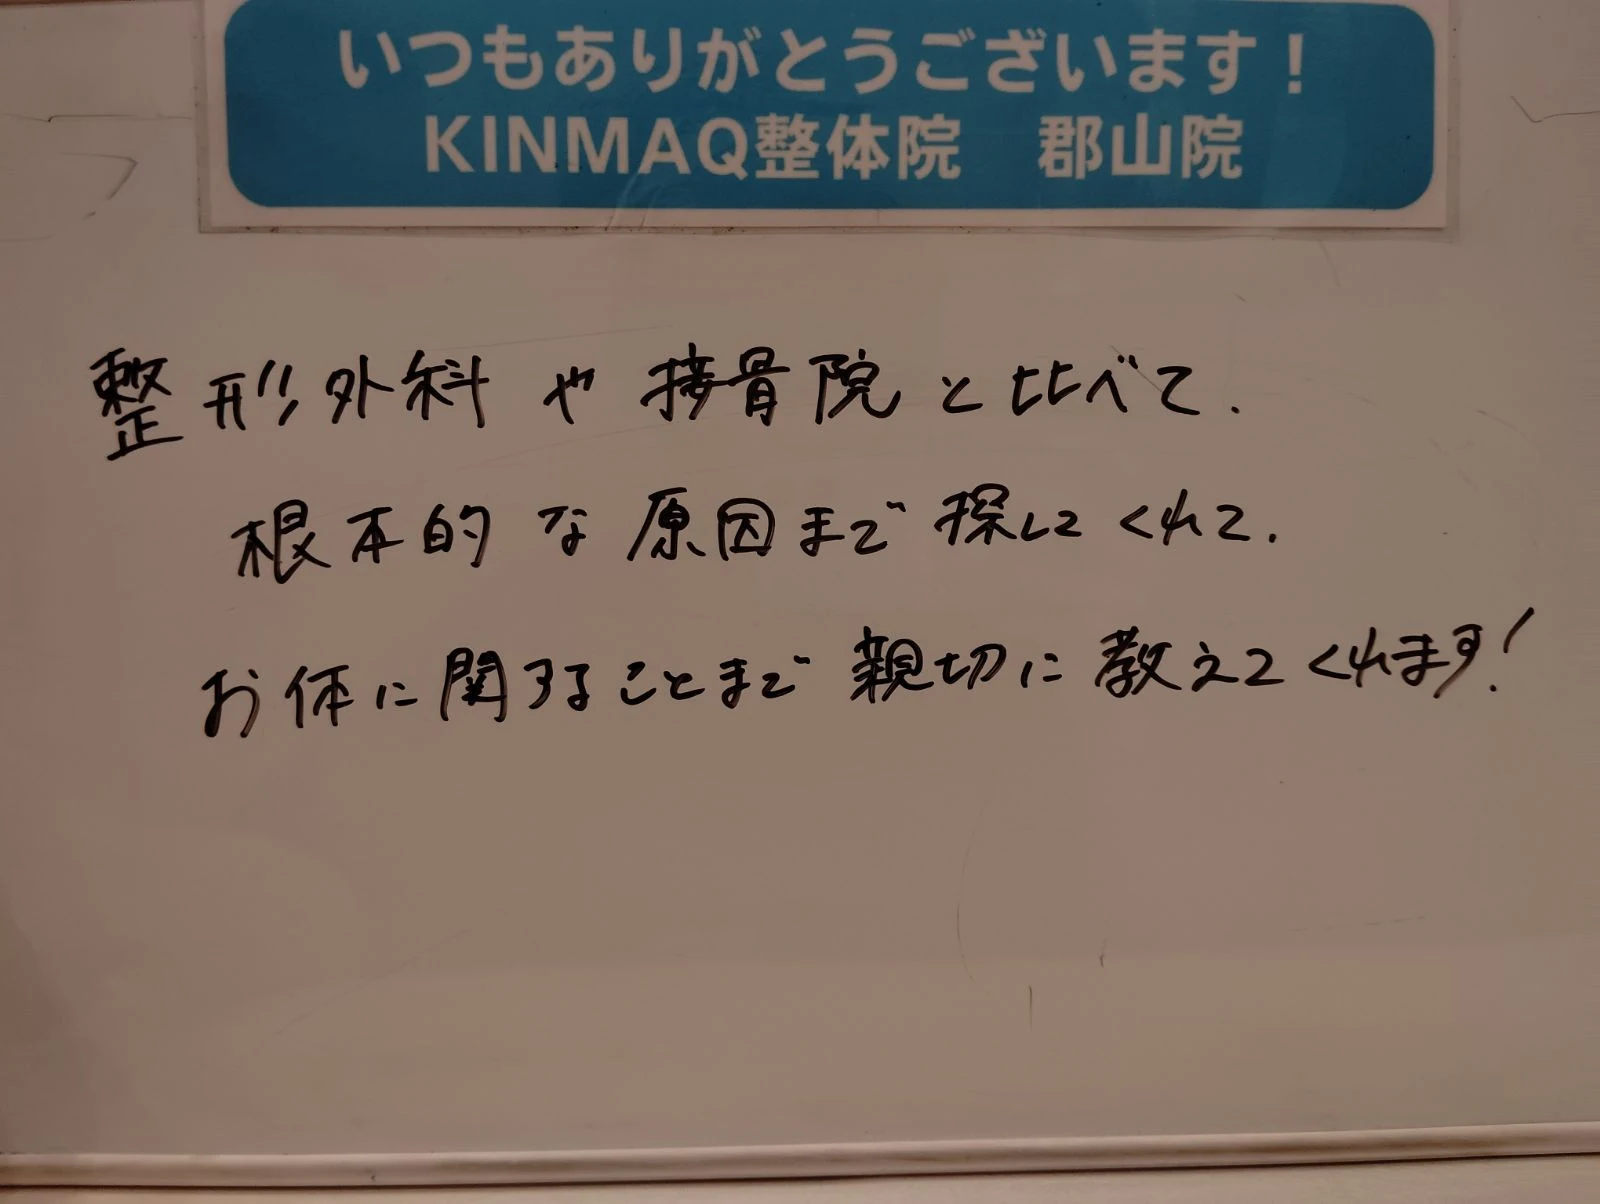 いつもありがとうございます！
KINMAQ整体院　郡山院
整形外科や接骨院と比べて.
根本的な原因まで探してくれて.
お体に関することまで親切に教えてくれます!